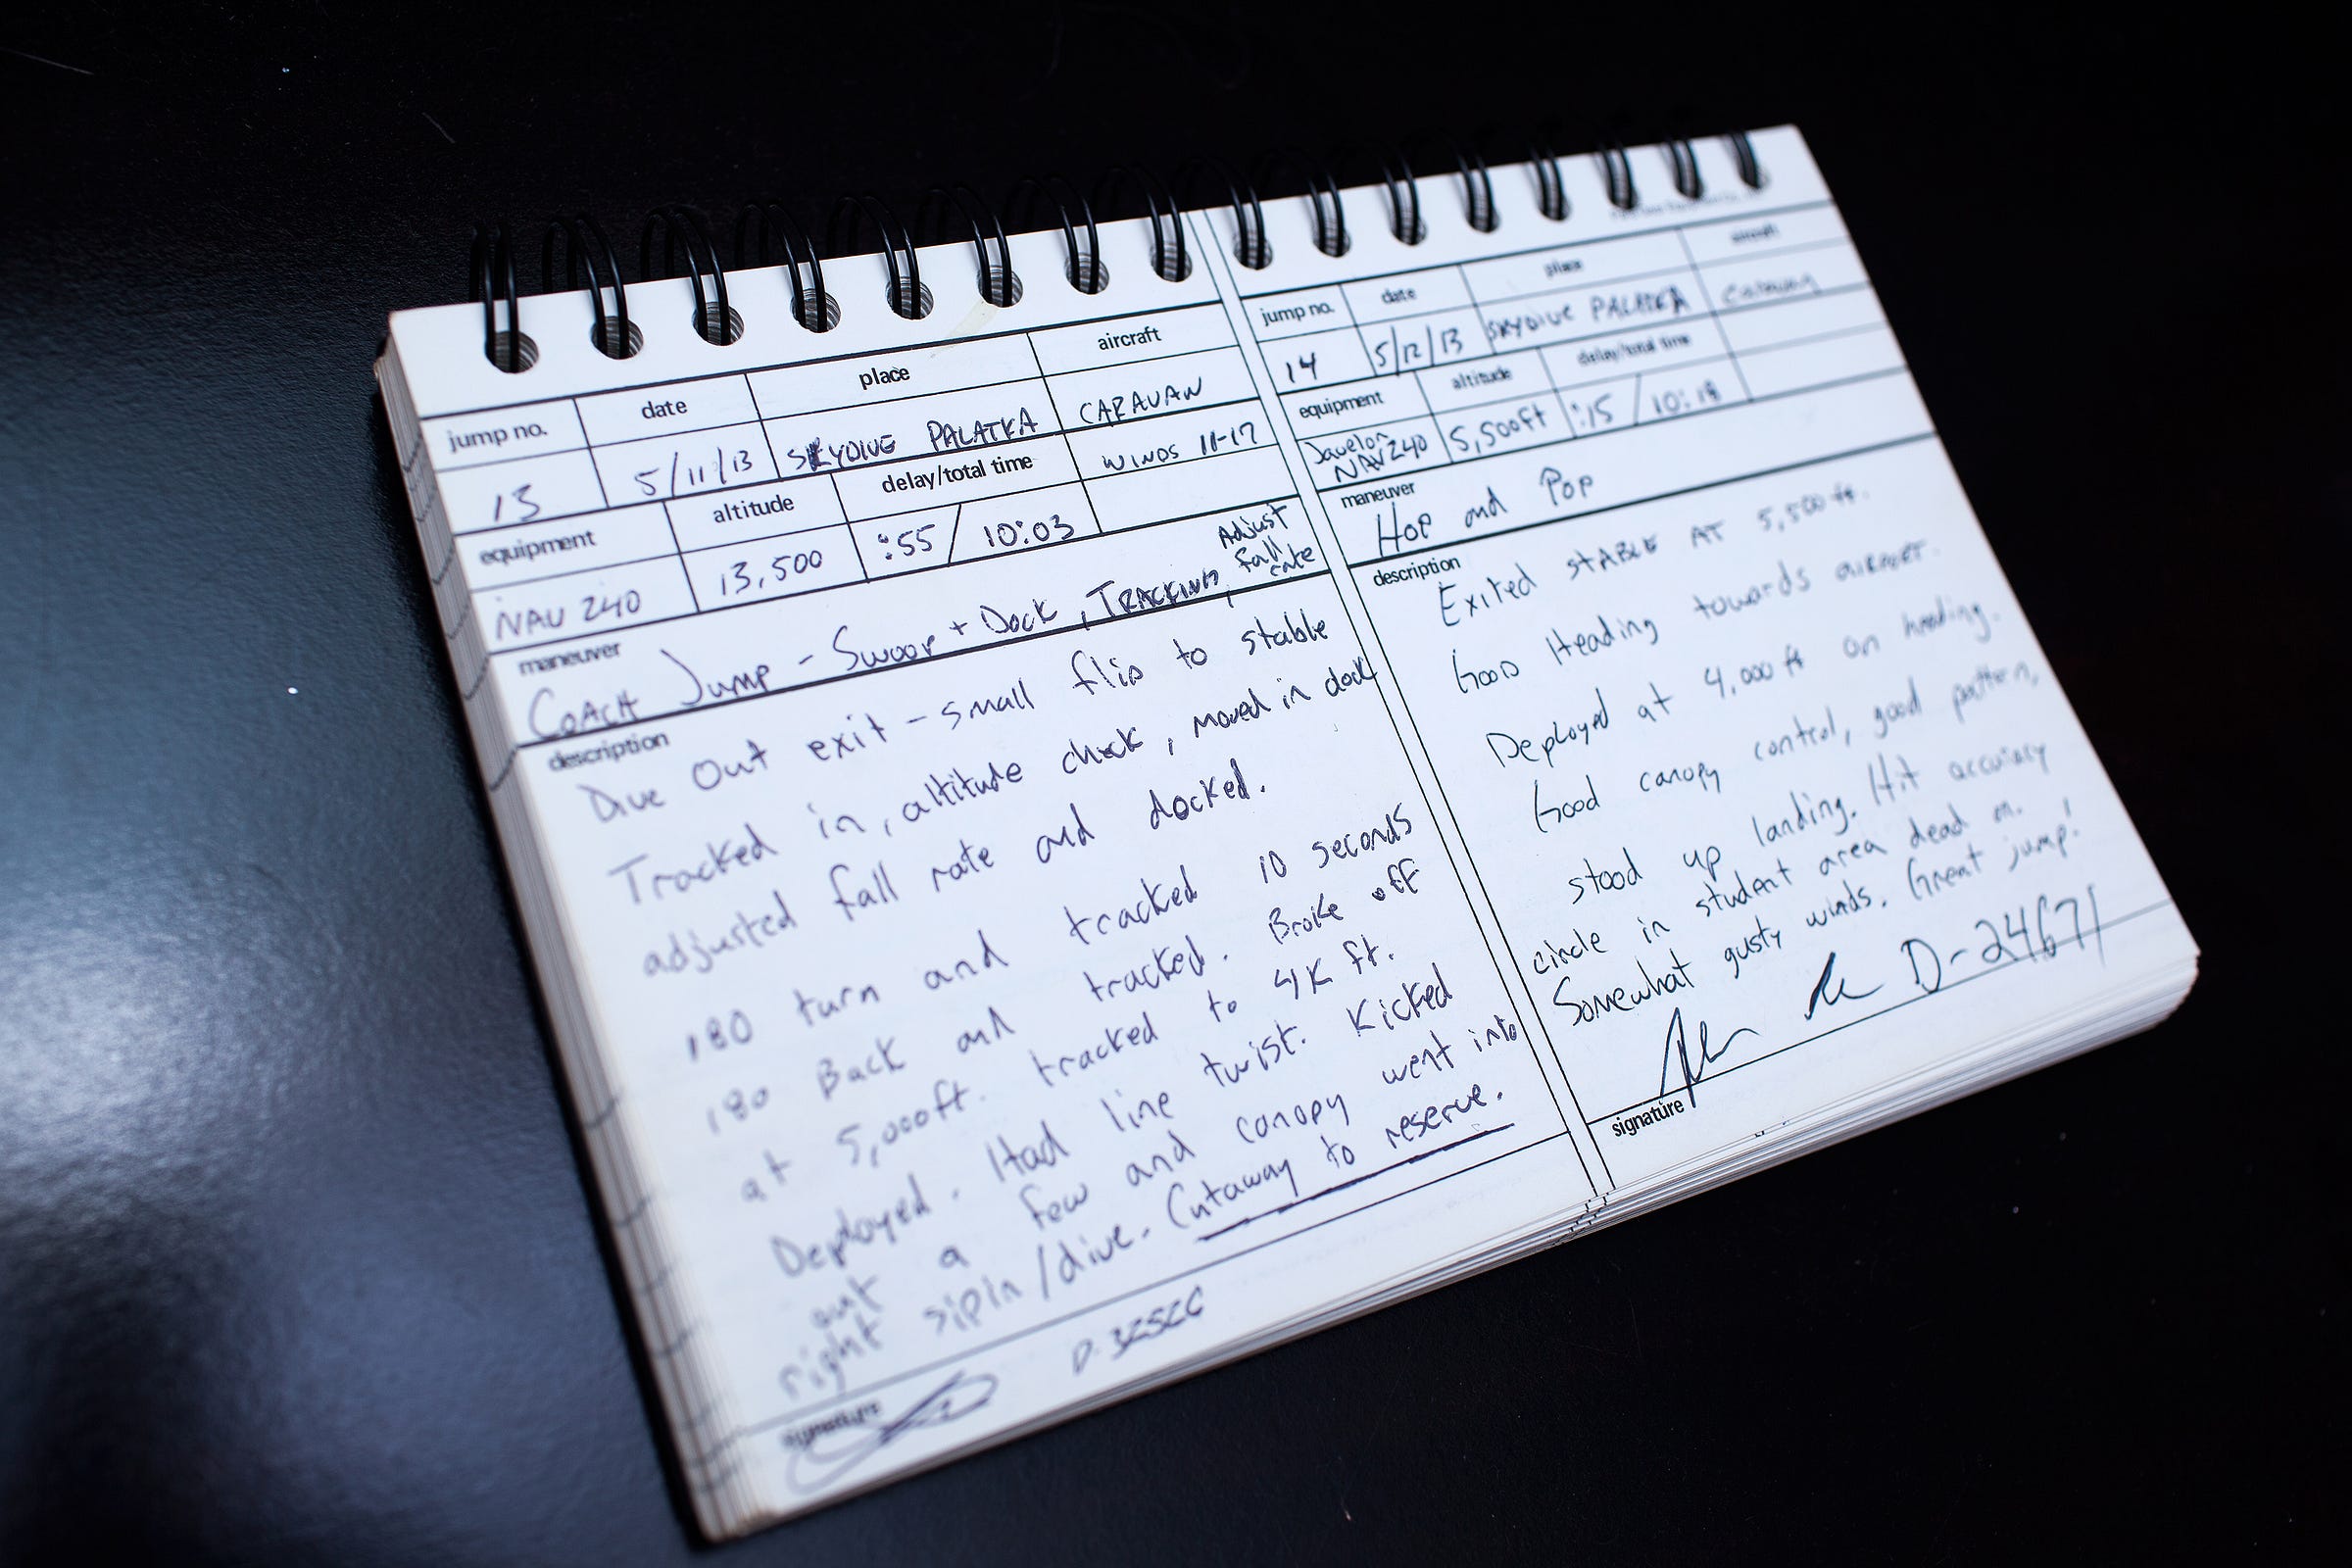 jump no. date place aircraft
13 5/11/13 SKYDIVE PALATKA CARAVAN
equipment altitude delay/total time WINDS 11-17
NAV 240 13,500 :55 / 10:03
maneuver
COACH Jump - Swoop + Dock, TRACKING, Adjust
fall
rate
description
Dive Out exit - small flip to stable
Tracked in, altitude check, moved in dock
adjusted fall rate and docked.
180 turn and tracked 10 seconds
180 Back and tracked. Broke off
at 5,000ft. tracked to 4K ft.
Deployed. Had line twist. Kicked
out a few and canopy went into
right sipin/dive. Cutaway to reserve.
signature
jump no. date place aircraft
14 5/12/13 SKYDIVE PALATKA Caravan
equipment altitude delay/total time
Javelon
NAV 240 5,500ft :15 / 10:18
maneuver
Hop and Pop
description
Exited STABLE AT 5,500 ft.
Good Heading towards airport.
Deployed at 4,000 ft on heading.
Good canopy control, good pattern,
stood up landing. Hit accuracy
circle in student area dead on.
Somewhat gusty winds. Great jump!
D-24671
signature